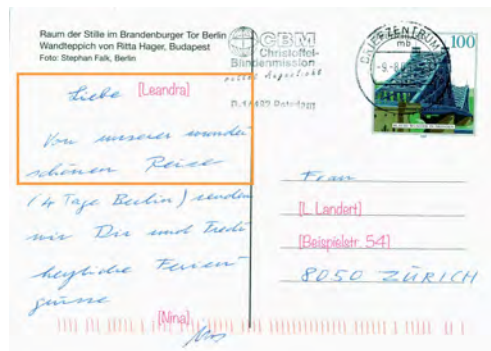 Raum der Stille im Brandenburger Tor Berlin
Wandteppich von Ritta Hager, Budapest
Foto: Stephan Falk, Berlin
CBM
Christoffel-
Blindenmission
rettet Augenlicht
D-14482 Potsdam
BRIEFZENTRUM
mb
-9.-8.
100
Liebe [Leandra]
Von unserer wunder
schönen Reise
(4 Tage Berlin) senden
wir Dir und Fredi
herzliche Ferien-
grüsse
[Nina]
Frau
[L. Landert]
[Beispielstr. 54]
8050 ZÜRICH